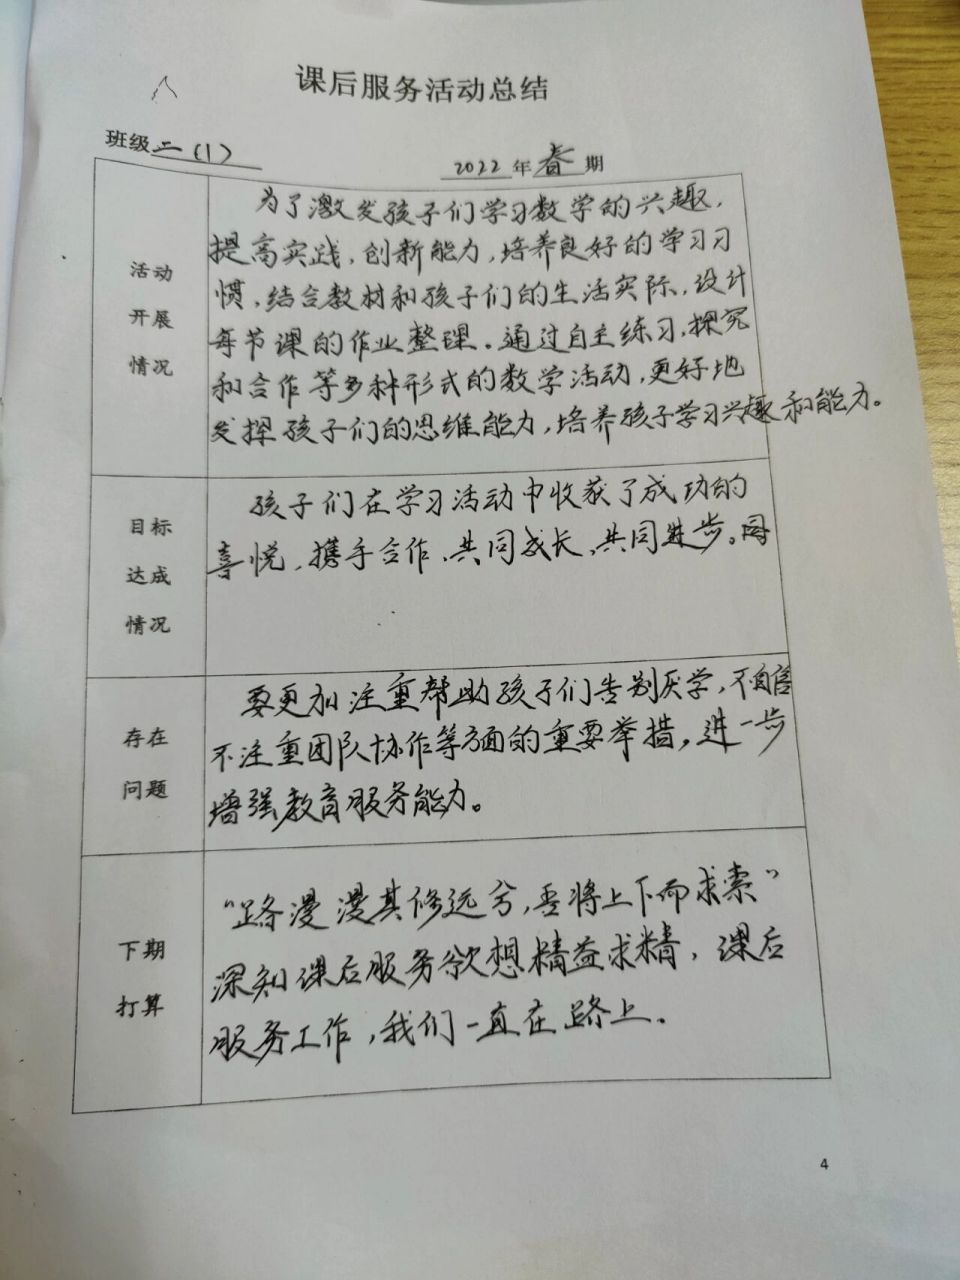 课后服务活动总结
班级二(1)
2022年春期
活动
开展
情况
为了激发孩子们学习数学的兴趣,
提高实践,创新能力,培养良好的学习习
惯,结合教材和孩子们的生活实际,设计
每节课的作业整理。通过自主练习,探究
和合作等多种形式的数学活动,更好地
发挥孩子们的思维能力,培养孩子学习兴趣和能力。
目标
达成
情况
孩子们在学习活动中收获了成功的
喜悦,携手合作、共同成长、共同进步。
存在
问题
要更加注重帮助孩子们告别厌学,不自信
不注重团队协作等方面的重要举措,进一步
增强教育服务能力。
下期
打算
“路漫漫其修远兮,吾将上下而求索”
深知课后服务欲想精益求精,课后
服务工作,我们一直在路上.
4